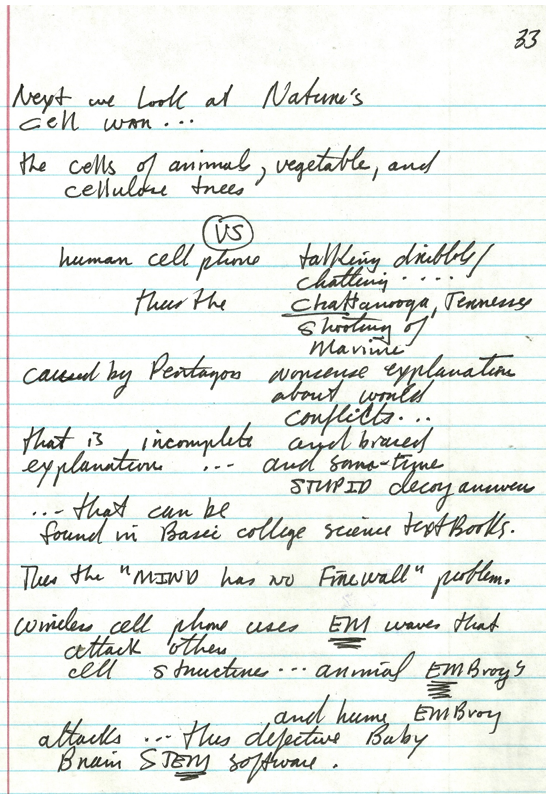 33
Next we look at Nature's
cell war...
the cells of animals, vegetable, and
cellulose trees
VS
human cell phone talking dribble/
chatting....
thus the Chattanooga, Tennessee
shooting of
Marine
caused by Pentagon nonsense explanation
about world
conflicts...
that is incomplete and biased
explanation ... and some-time
STUPID decoy answers
... that can be
found in Basic college science textBooks.
Thus the "MIND has no Firewall" problem.
Wireless cell phone uses EM waves that
attack others
cell structure... animal EMBroys
and hume EMBroy
attacks ... thus defective Baby
Brain STEM software.